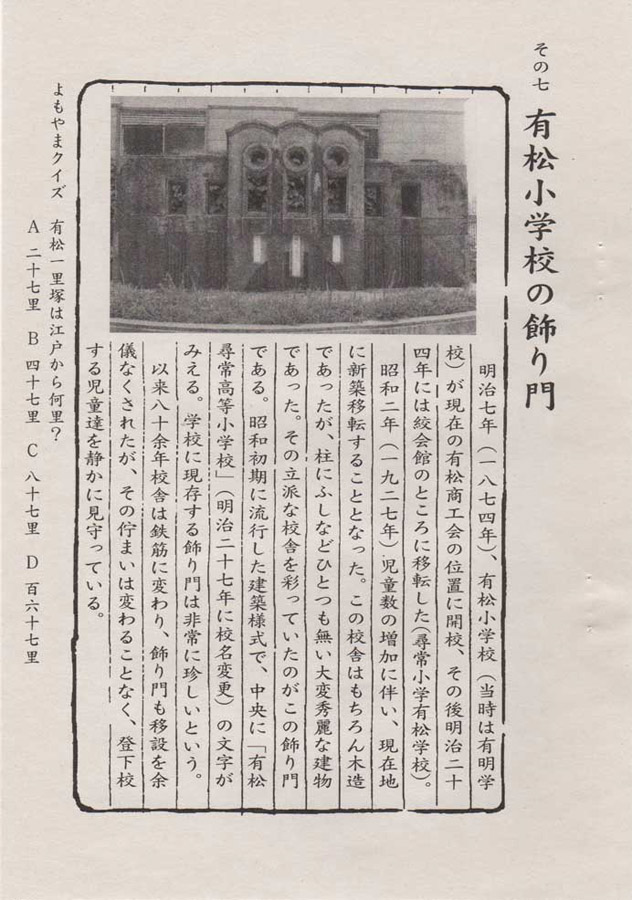 その七　有松小学校の飾り門
明治七年（一八七四年）、有松小学校（当時は有明学
校）が現在の有松商工会の位置に開校、その後明治二十
四年には絞会館のところに移転した（尋常小学有松学校）。
昭和二年（一九二七年）児童数の増加に伴い、現在地
に新築移転することとなった。この校舎はもちろん木造
であったが、柱にふしなどひとつも無い大変秀麗な建物
であった。その立派な校舎を彩っていたのがこの飾り門
である。昭和初期に流行した建築様式で、中央に「有松
尋常高等小学校」（明治二十七年に校名変更）の文字が
みえる。学校に現存する飾り門は非常に珍しいという。
以来八十余年校舎は鉄筋に変わり、飾り門も移設を余
儀なくされたが、その佇まいは変わることなく、登下校
する児童達を静かに見守っている。
よもやまクイズ　有松一里塚は江戸から何里？
A 二十七里　B 四十七里　C 八十七里　D 百六十七里